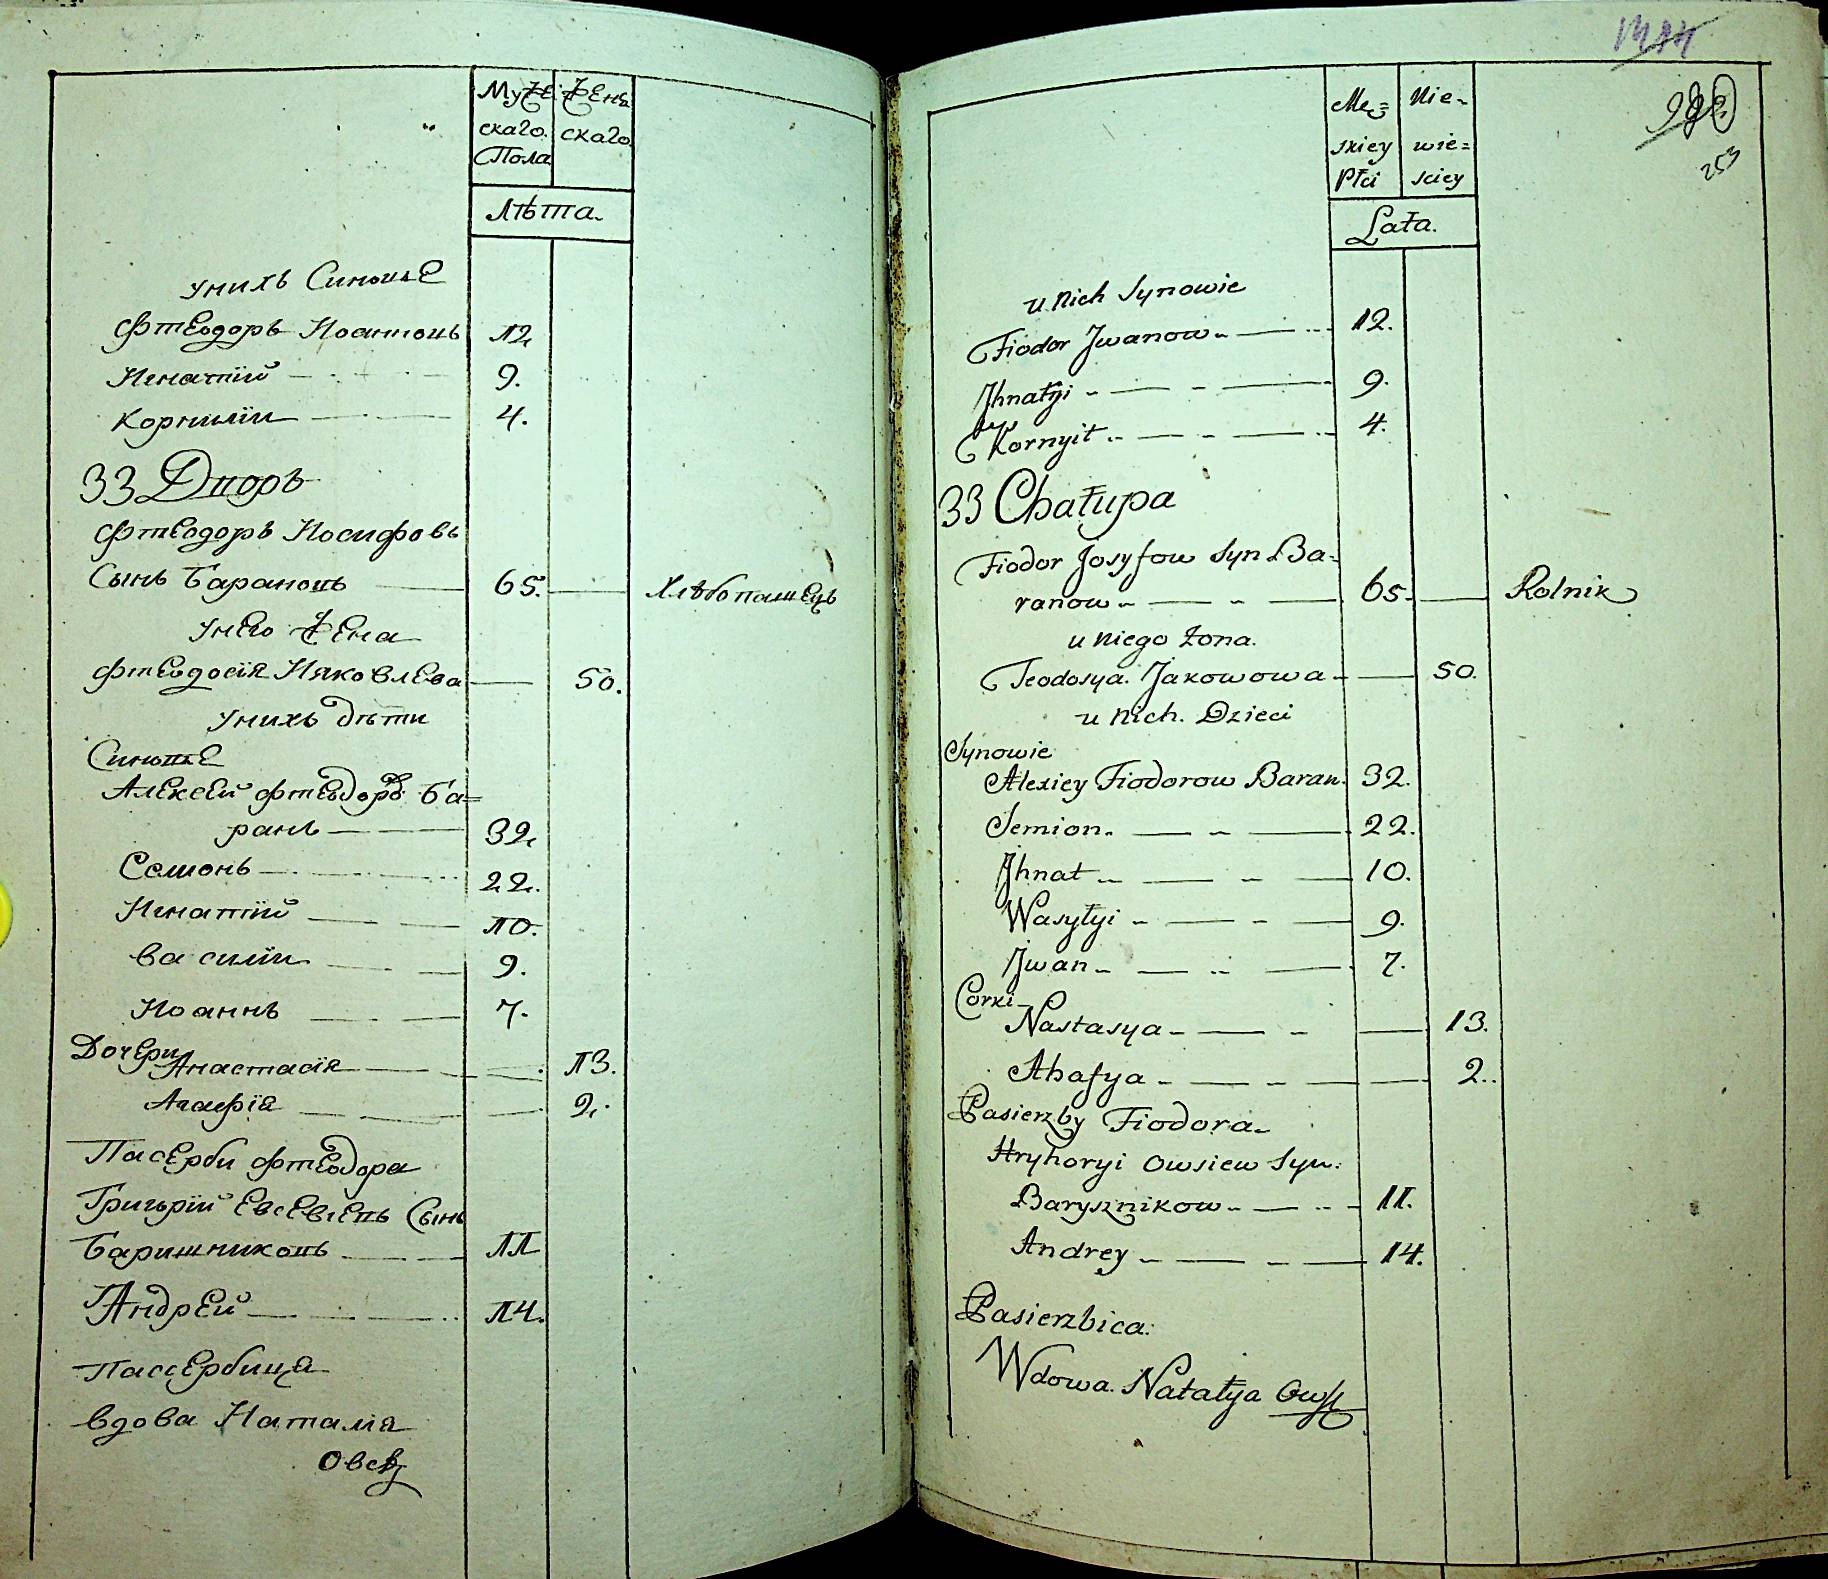 Мужескаго Пола
Женскаго
Лѣта.
унихъ Синовъе
Фтеодоръ Иоанновъ 12
Игнатїй 9.
Корнилїи 4.
33 Дворъ
Фтеодоръ Иосифовъ
Сынъ Барановъ 65. Хлѣбопашецъ
унего Жена
Фтеодосїя Ияковлева 50.
унихъ дѣти
Синовъе
Алексей Фтеодоръ Ба=
ранъ 32
Семионъ 22.
Игнатїй 10.
Василїи 9.
Иоаннъ 7.
Дочери
Анастасїя 13.
Агафїя 2.
Пасерби Фтеодора
Григорїй Евсевіевъ Сынъ
Баришниковъ 11
Андрей 14.
Пассербица
Вдова Наталїя
Овсѣ
Mę=
skiey
Płci
Nie-
wie=
sciey
Lata.
253
u nich Synowie
Fiodor Jwanow 12.
Jhnatyi 9.
Kornyił 4.
33 Chałupa
Fiodor Josyfow Syn Ba=
ranow 65. Rolnik
u niego żona.
Teodosya. Jakowowa 50.
u nich. Dzieci
Synowie
Alexiey Fiodorow Baran. 32.
Semion. 22.
Jhnat 10.
Wasyłyi 9.
Jwan 7.
Corki
Nastasya 13.
Ahafya 2.
Pasierzby Fiodora
Hryhoryi Owsiew Syn:
Barysznikow 11.
Andrey 14.
Pasierzbica:
Wdowa. Natałya Ows